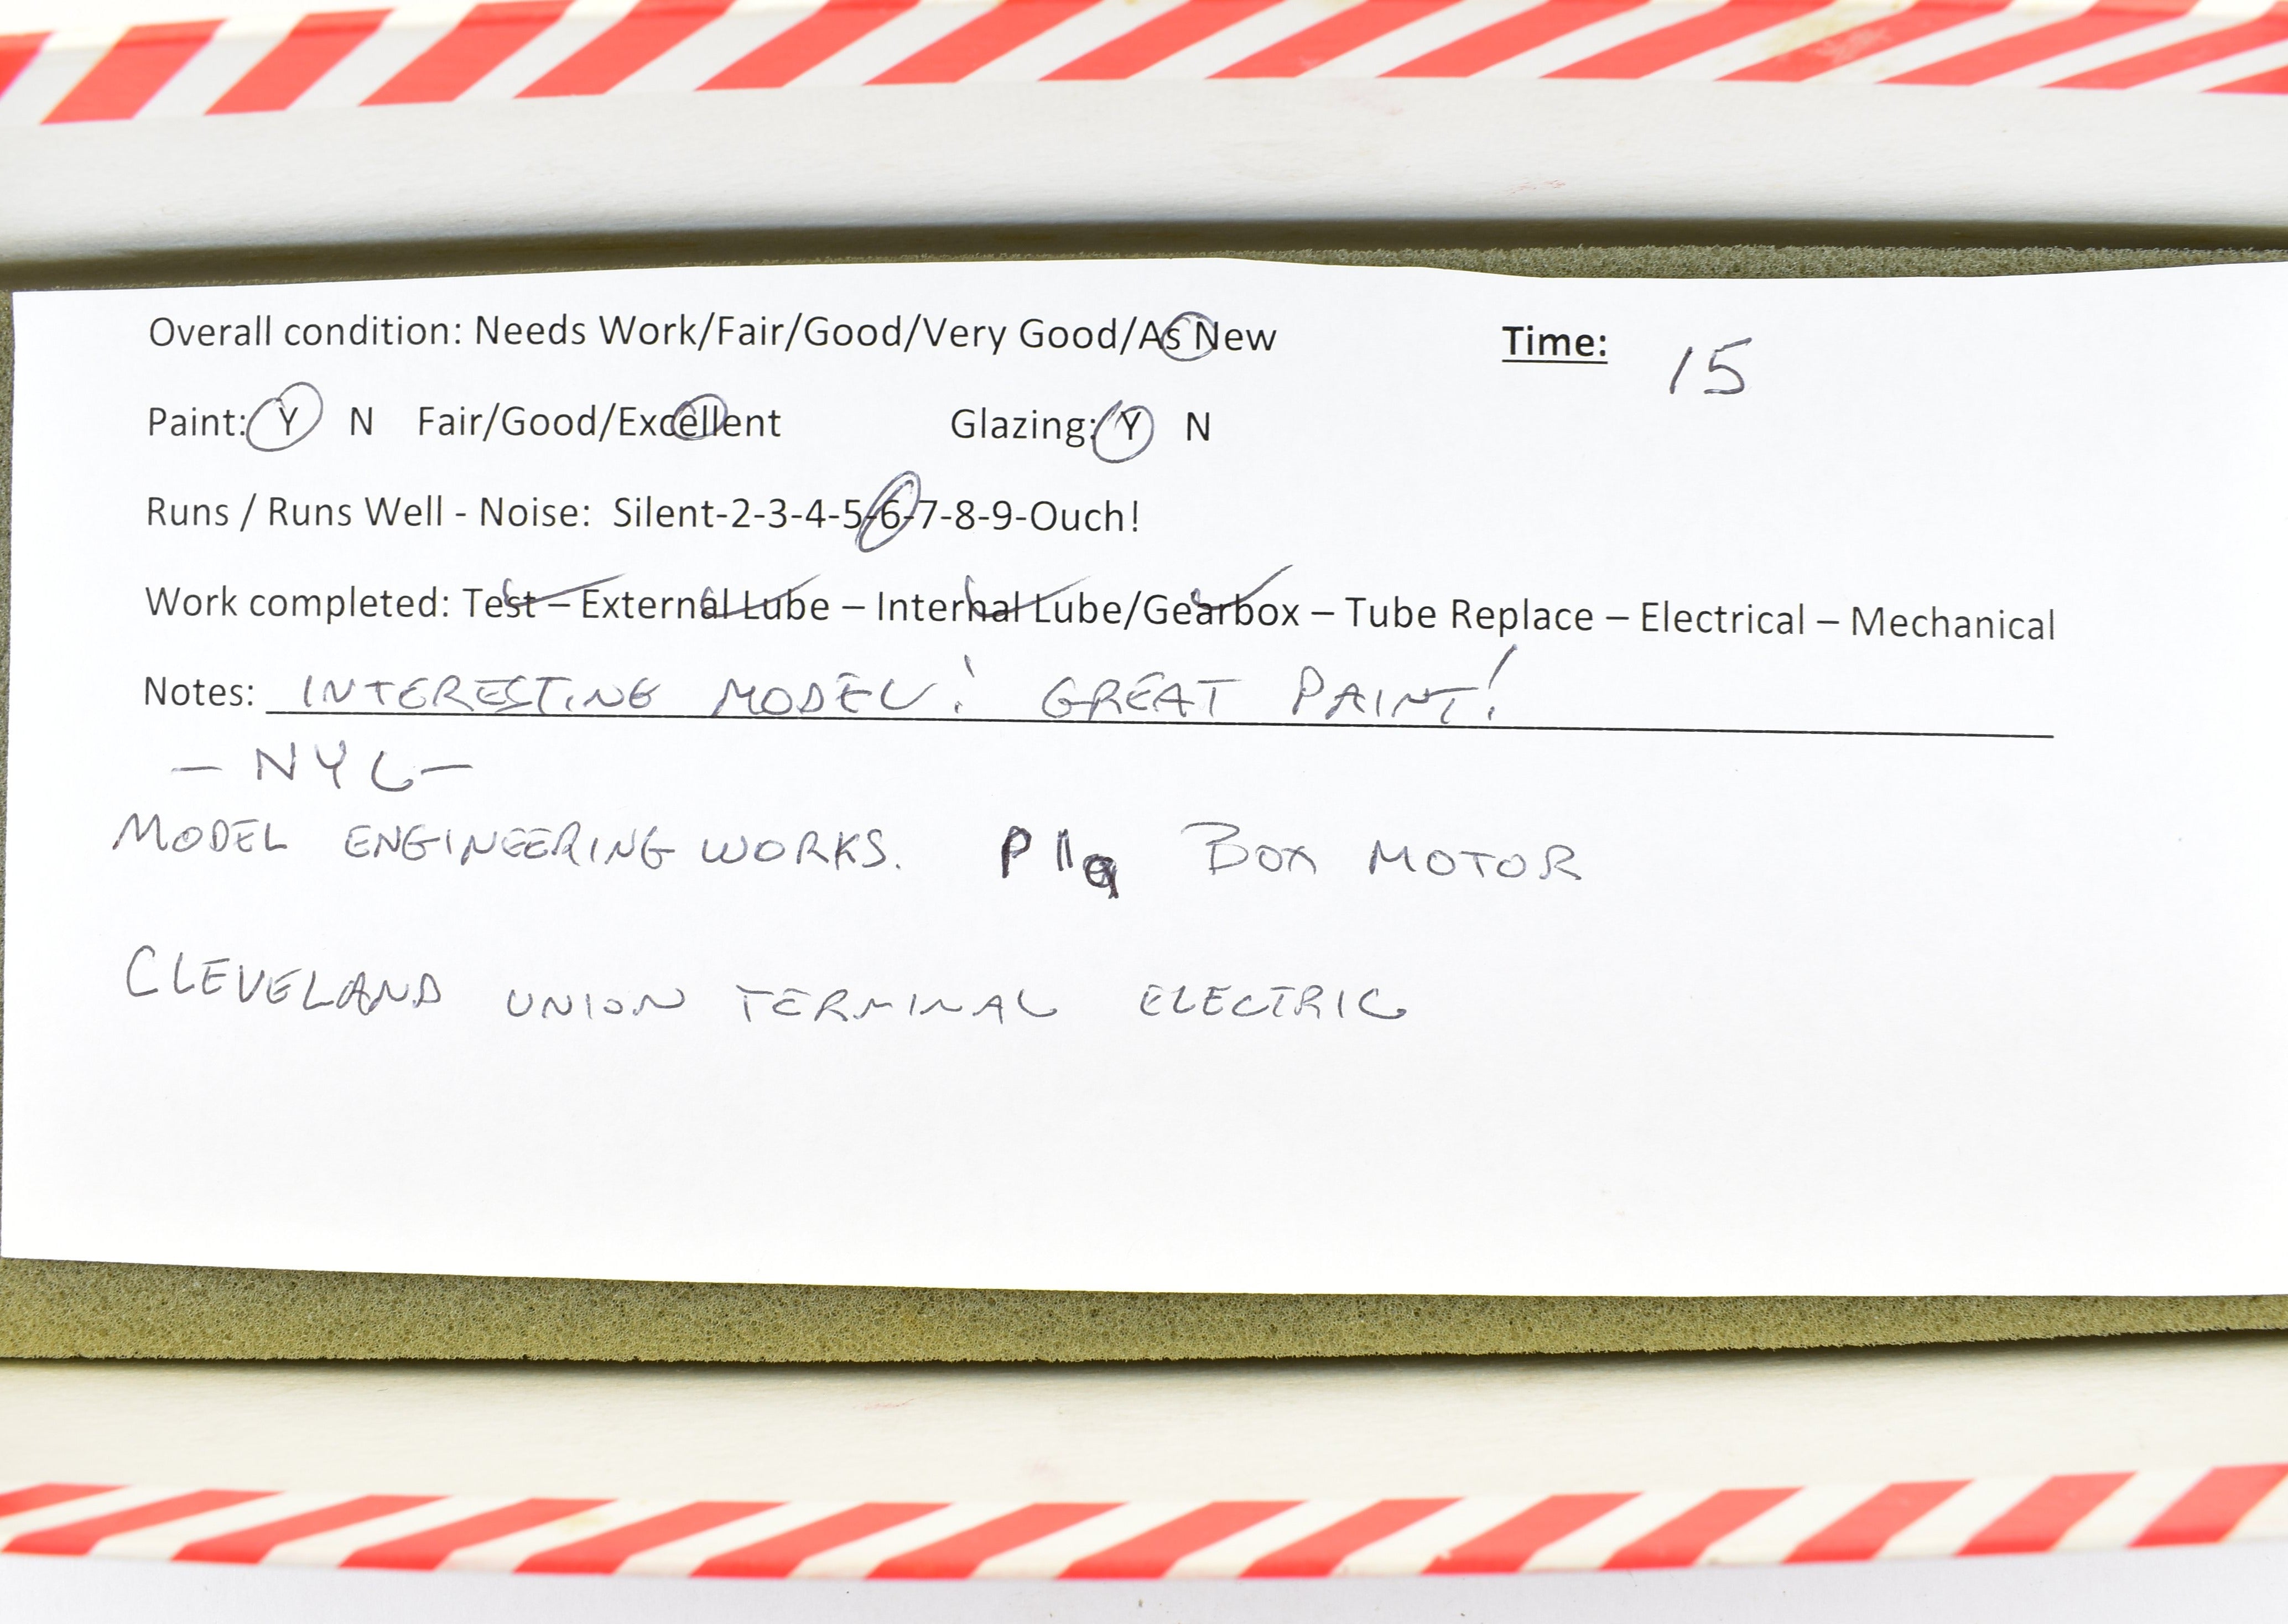 Overall condition: Needs Work/Fair/Good/Very Good/As New Time: 15
Paint: Y N Fair/Good/Excellent Glazing: Y N
Runs / Runs Well - Noise: Silent-2-3-4-5-6-7-8-9-Ouch!
Work completed: Test – External Lube – Internal Lube/Gearbox – Tube Replace – Electrical – Mechanical
Notes: INTERESTING MODEL! GREAT PAINT!
— NYC —
MODEL ENGINEERING WORKS. P11a BOX MOTOR
CLEVELAND UNION TERMINAL ELECTRIC